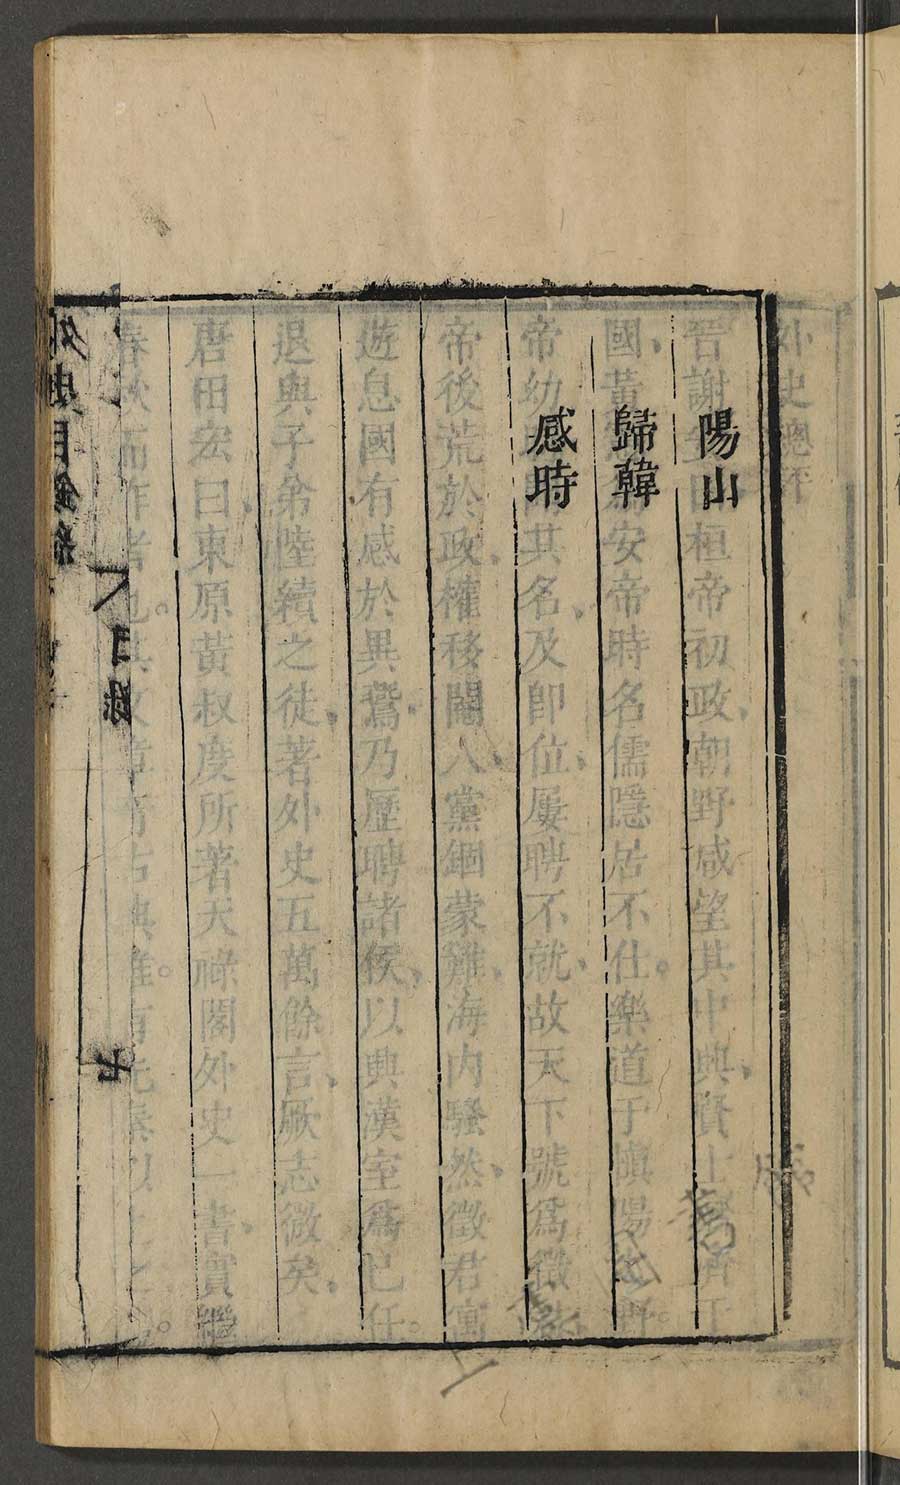 陽山
歸韓
感時
目錄
七
外史總評
晉謝 曰桓帝初政、朝野咸望其中興、賢士
國、黃 安帝時名儒隱居不仕。樂道于慎陽 野。
帝幼 其名、及即位、屢聘不就、故天下號為徵
帝後荒於政、權移閹人、黨錮蒙難、海內騷然、徵君寓
遊息國有感於異鵞、乃歷聘諸侯、以興漢室為己任。
退與子弟陸續之徒、著外史五萬餘言、厥志微矣、
唐田宏曰、東原黃叔度所著天祿閣外史一書、實繼
春秋而作者也。其文章 古典雅。有先秦以上之